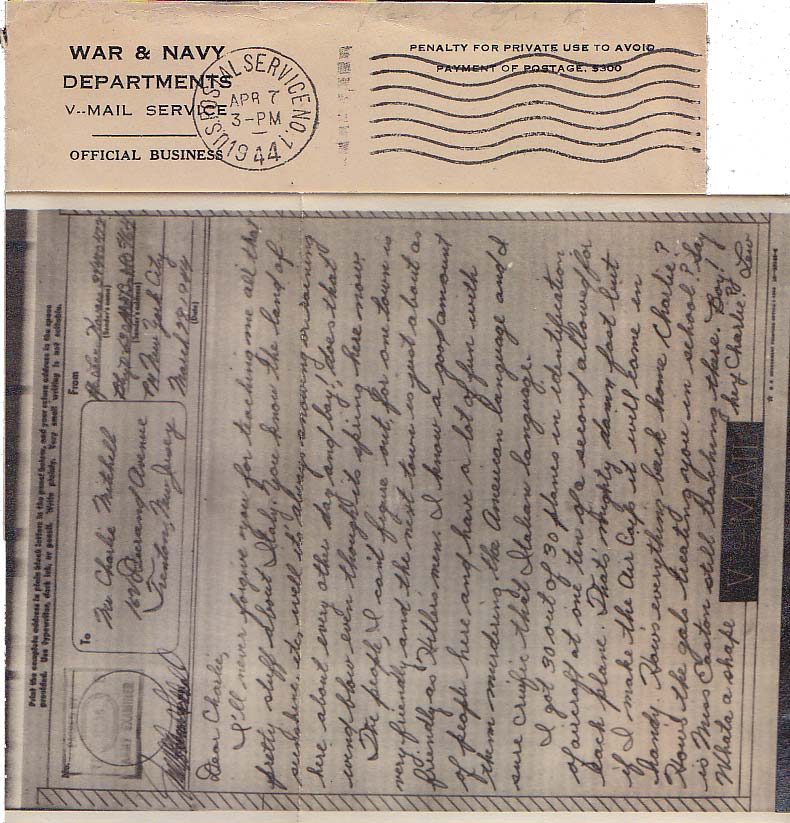 WAR & NAVY
DEPARTMENTS
V--MAIL SERVICE
OFFICIAL BUSINESS
U.S. POSTAL SERVICE NO. 1
APR 7
3-PM
1944
PENALTY FOR PRIVATE USE TO AVOID
PAYMENT OF POSTAGE, $300
Print the complete address in plain block letters in the panel below, and your return address in the space
provided. Use typewriter, dark ink, or pencil. Write plainly. Very small writing is not suitable.
No.
To
Mr Charlie Mitchell
Avenue
Trenton, New Jersey
From
(Sender's name)
(Sender's address)
New York City
March 29, 1944
(Date)
Dear Charlie,
I'll never forgive you for teaching me all that
pretty stuff about Italy, you know the land of
sunshine etc, well it's always snowing or raining
here about every other day and boy! does that
wind blow even thought its spring here now.
The people, I can't figure out, for one town is
very friendly and the next town is just about as
friendly as Hitler's men. I know a good amount
of people here and have a lot of fun with
them murdering the American language and I
sure crucific that Italian language.
I got 30 out of 30 planes in identification
of aircraft at one ten of a second allowed for
each plane. That's mighty damn fast but
if I make the Air Corps it will come in
handy. How's everything back home Charlie?
How's the gals treating you in school? Say
is Miss Caston still teaching there. Boy!
Whata a shape
hey Charlie? Lew
V-MAIL